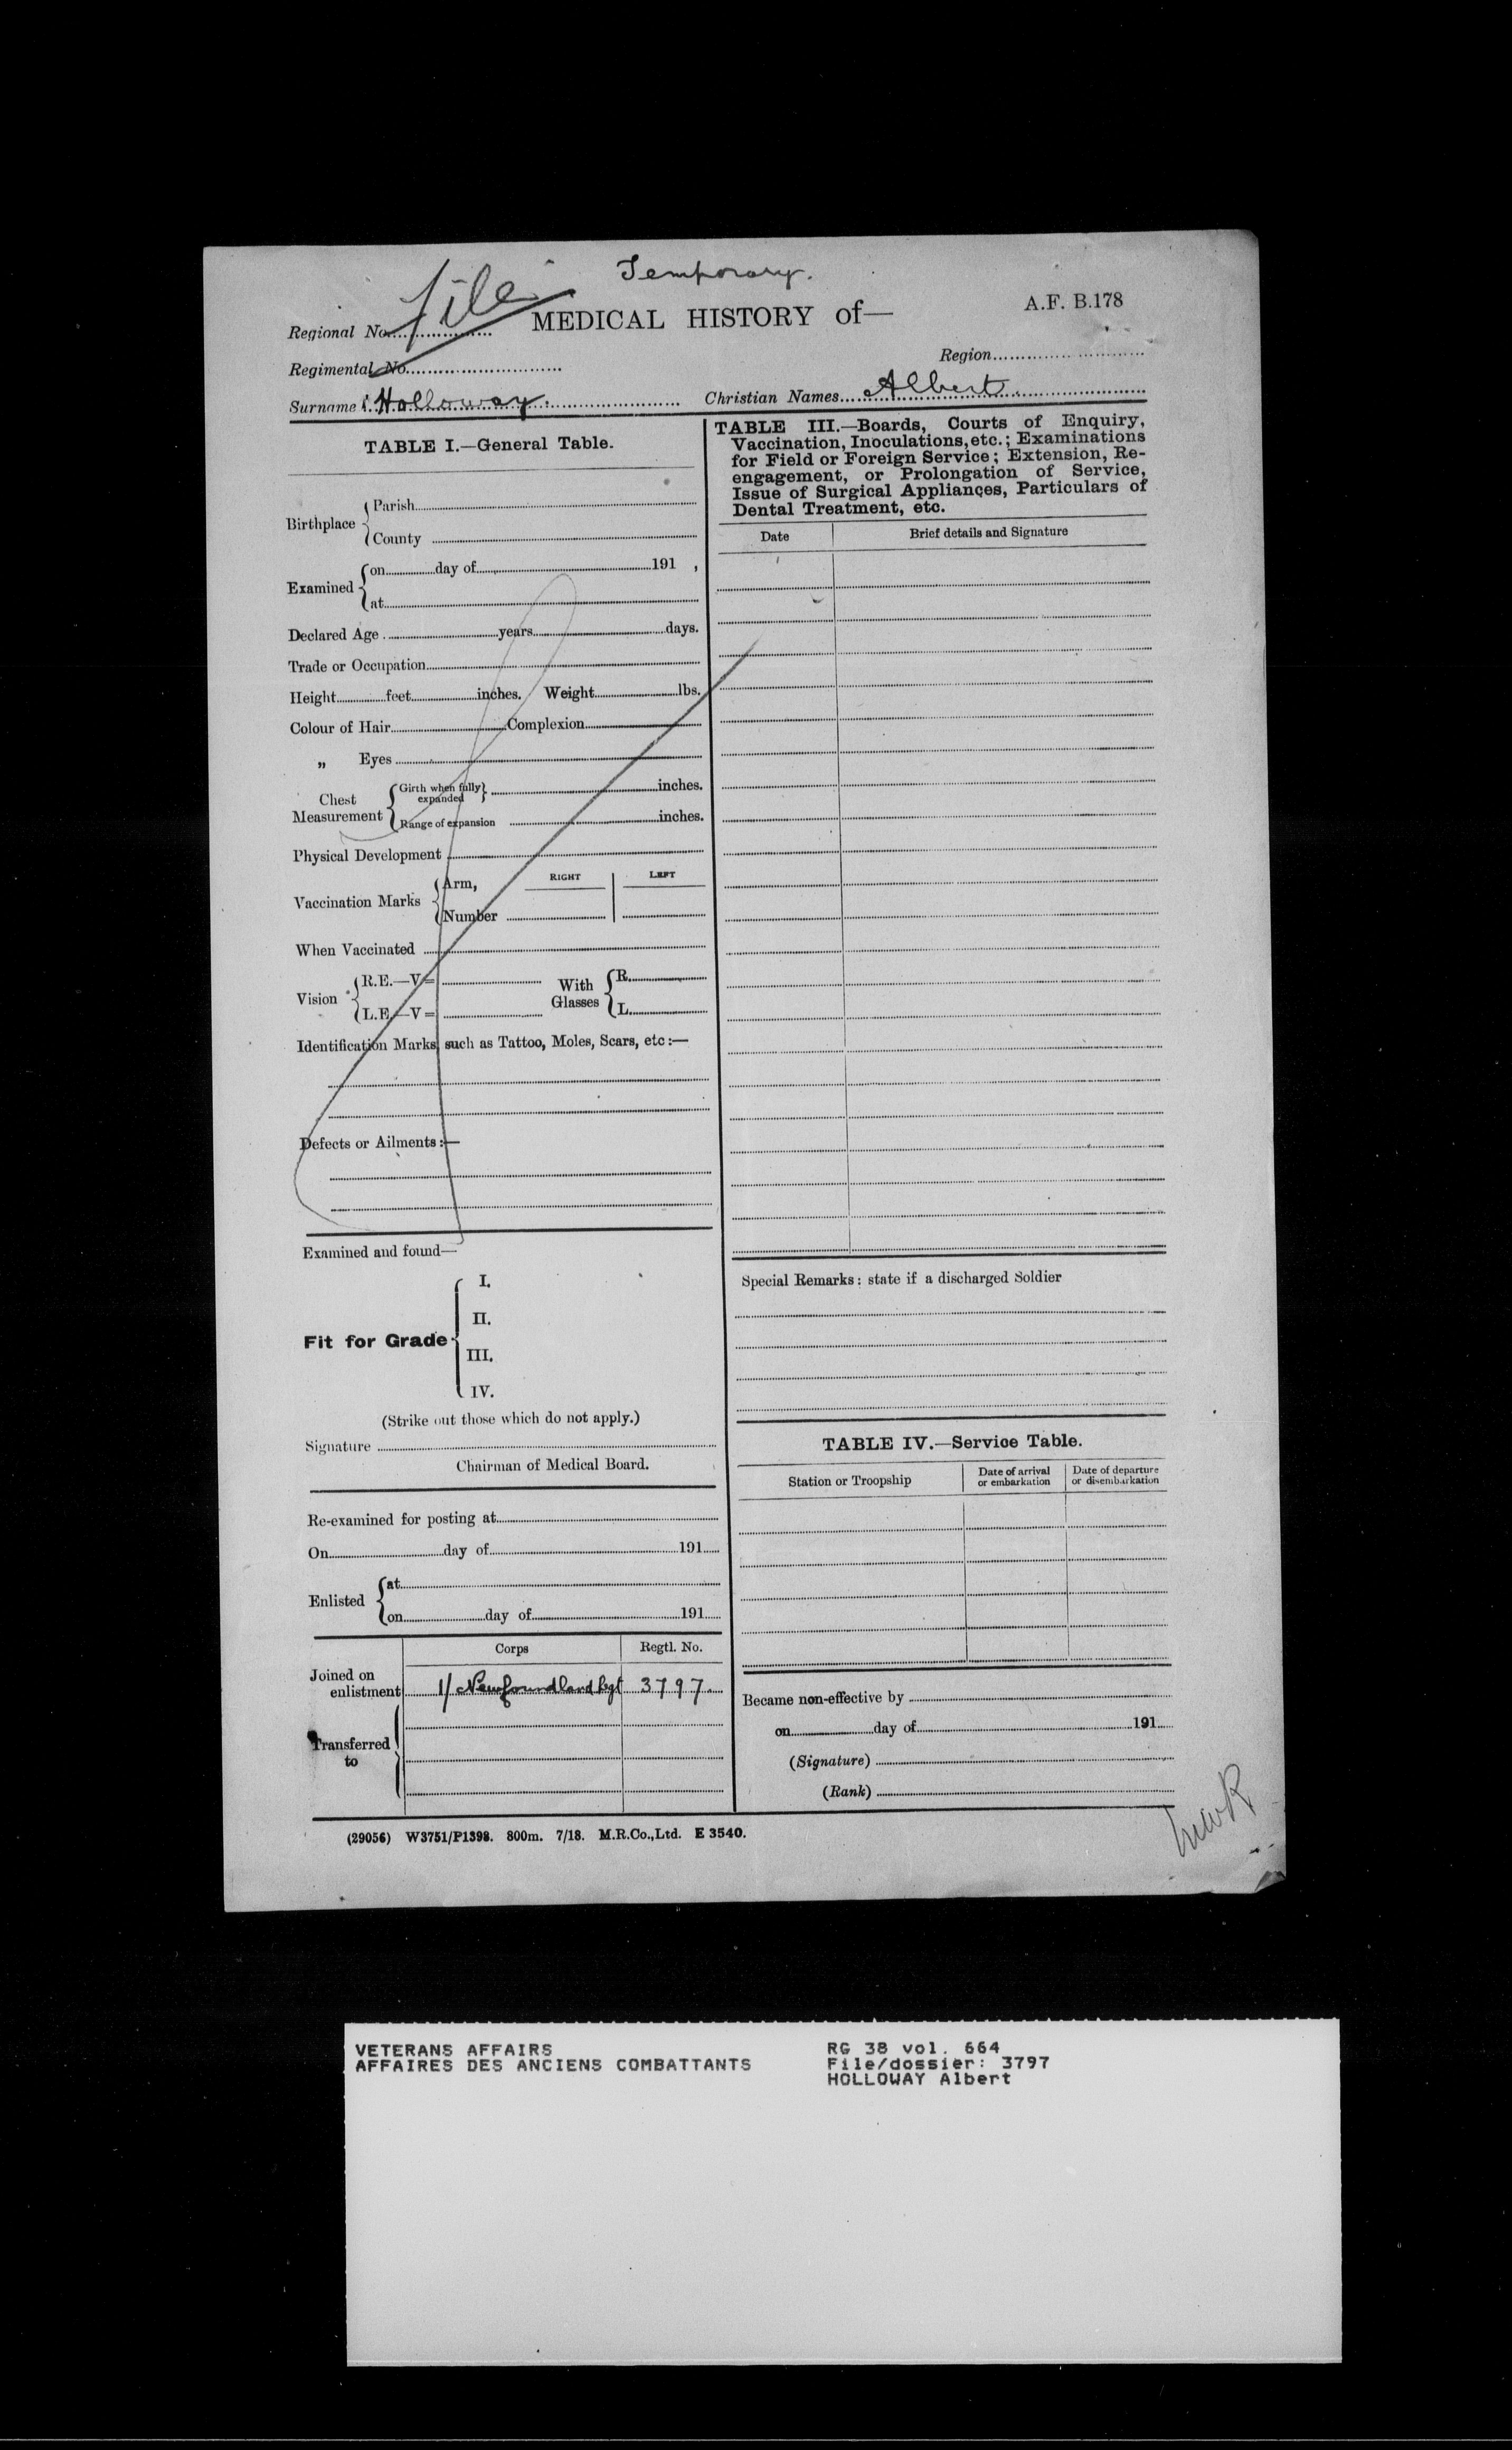 Temporary.
File
A.F. B.178
Regional No.
MEDICAL HISTORY of—
Regimental No.
Region
Surname Holloway. Christian Names Albert
TABLE I.—General Table.
Birthplace { Parish
County
Examined { on day of 191 ,
at
Declared Age years days.
Trade or Occupation
Height feet inches. Weight lbs.
Colour of Hair Complexion
„ Eyes
Chest Measurement { Girth when fully expanded } inches.
Range of expansion inches.
Physical Development
Vaccination Marks { Arm, RIGHT LEFT
Number
When Vaccinated
Vision { R.E.—V= With Glasses { R.
L.E.—V= L.
Identification Marks, such as Tattoo, Moles, Scars, etc :—
Defects or Ailments :—
Examined and found—
Fit for Grade { I.
II.
III.
IV.
(Strike out those which do not apply.)
Signature
Chairman of Medical Board.
Re-examined for posting at
On day of 191
Enlisted { at
on day of 191
Corps Regtl. No.
Joined on enlistment 1/ Newfoundland Rgt 3797.
Transferred to
(29056) W3751/P1398. 800m. 7/18. M.R.Co.,Ltd. E 3540.
TABLE III.—Boards, Courts of Enquiry,
Vaccination, Inoculations, etc.; Examinations
for Field or Foreign Service; Extension, Re-
engagement, or Prolongation of Service,
Issue of Surgical Appliances, Particulars of
Dental Treatment, etc.
Date Brief details and Signature
Special Remarks: state if a discharged Soldier
TABLE IV.—Service Table.
Station or Troopship Date of arrival or embarkation Date of departure or disembarkation
Became non-effective by
on day of 191
(Signature)
(Rank)
VETERANS AFFAIRS
AFFAIRES DES ANCIENS COMBATTANTS
RG 38 vol. 664
File/dossier: 3797
HOLLOWAY Albert